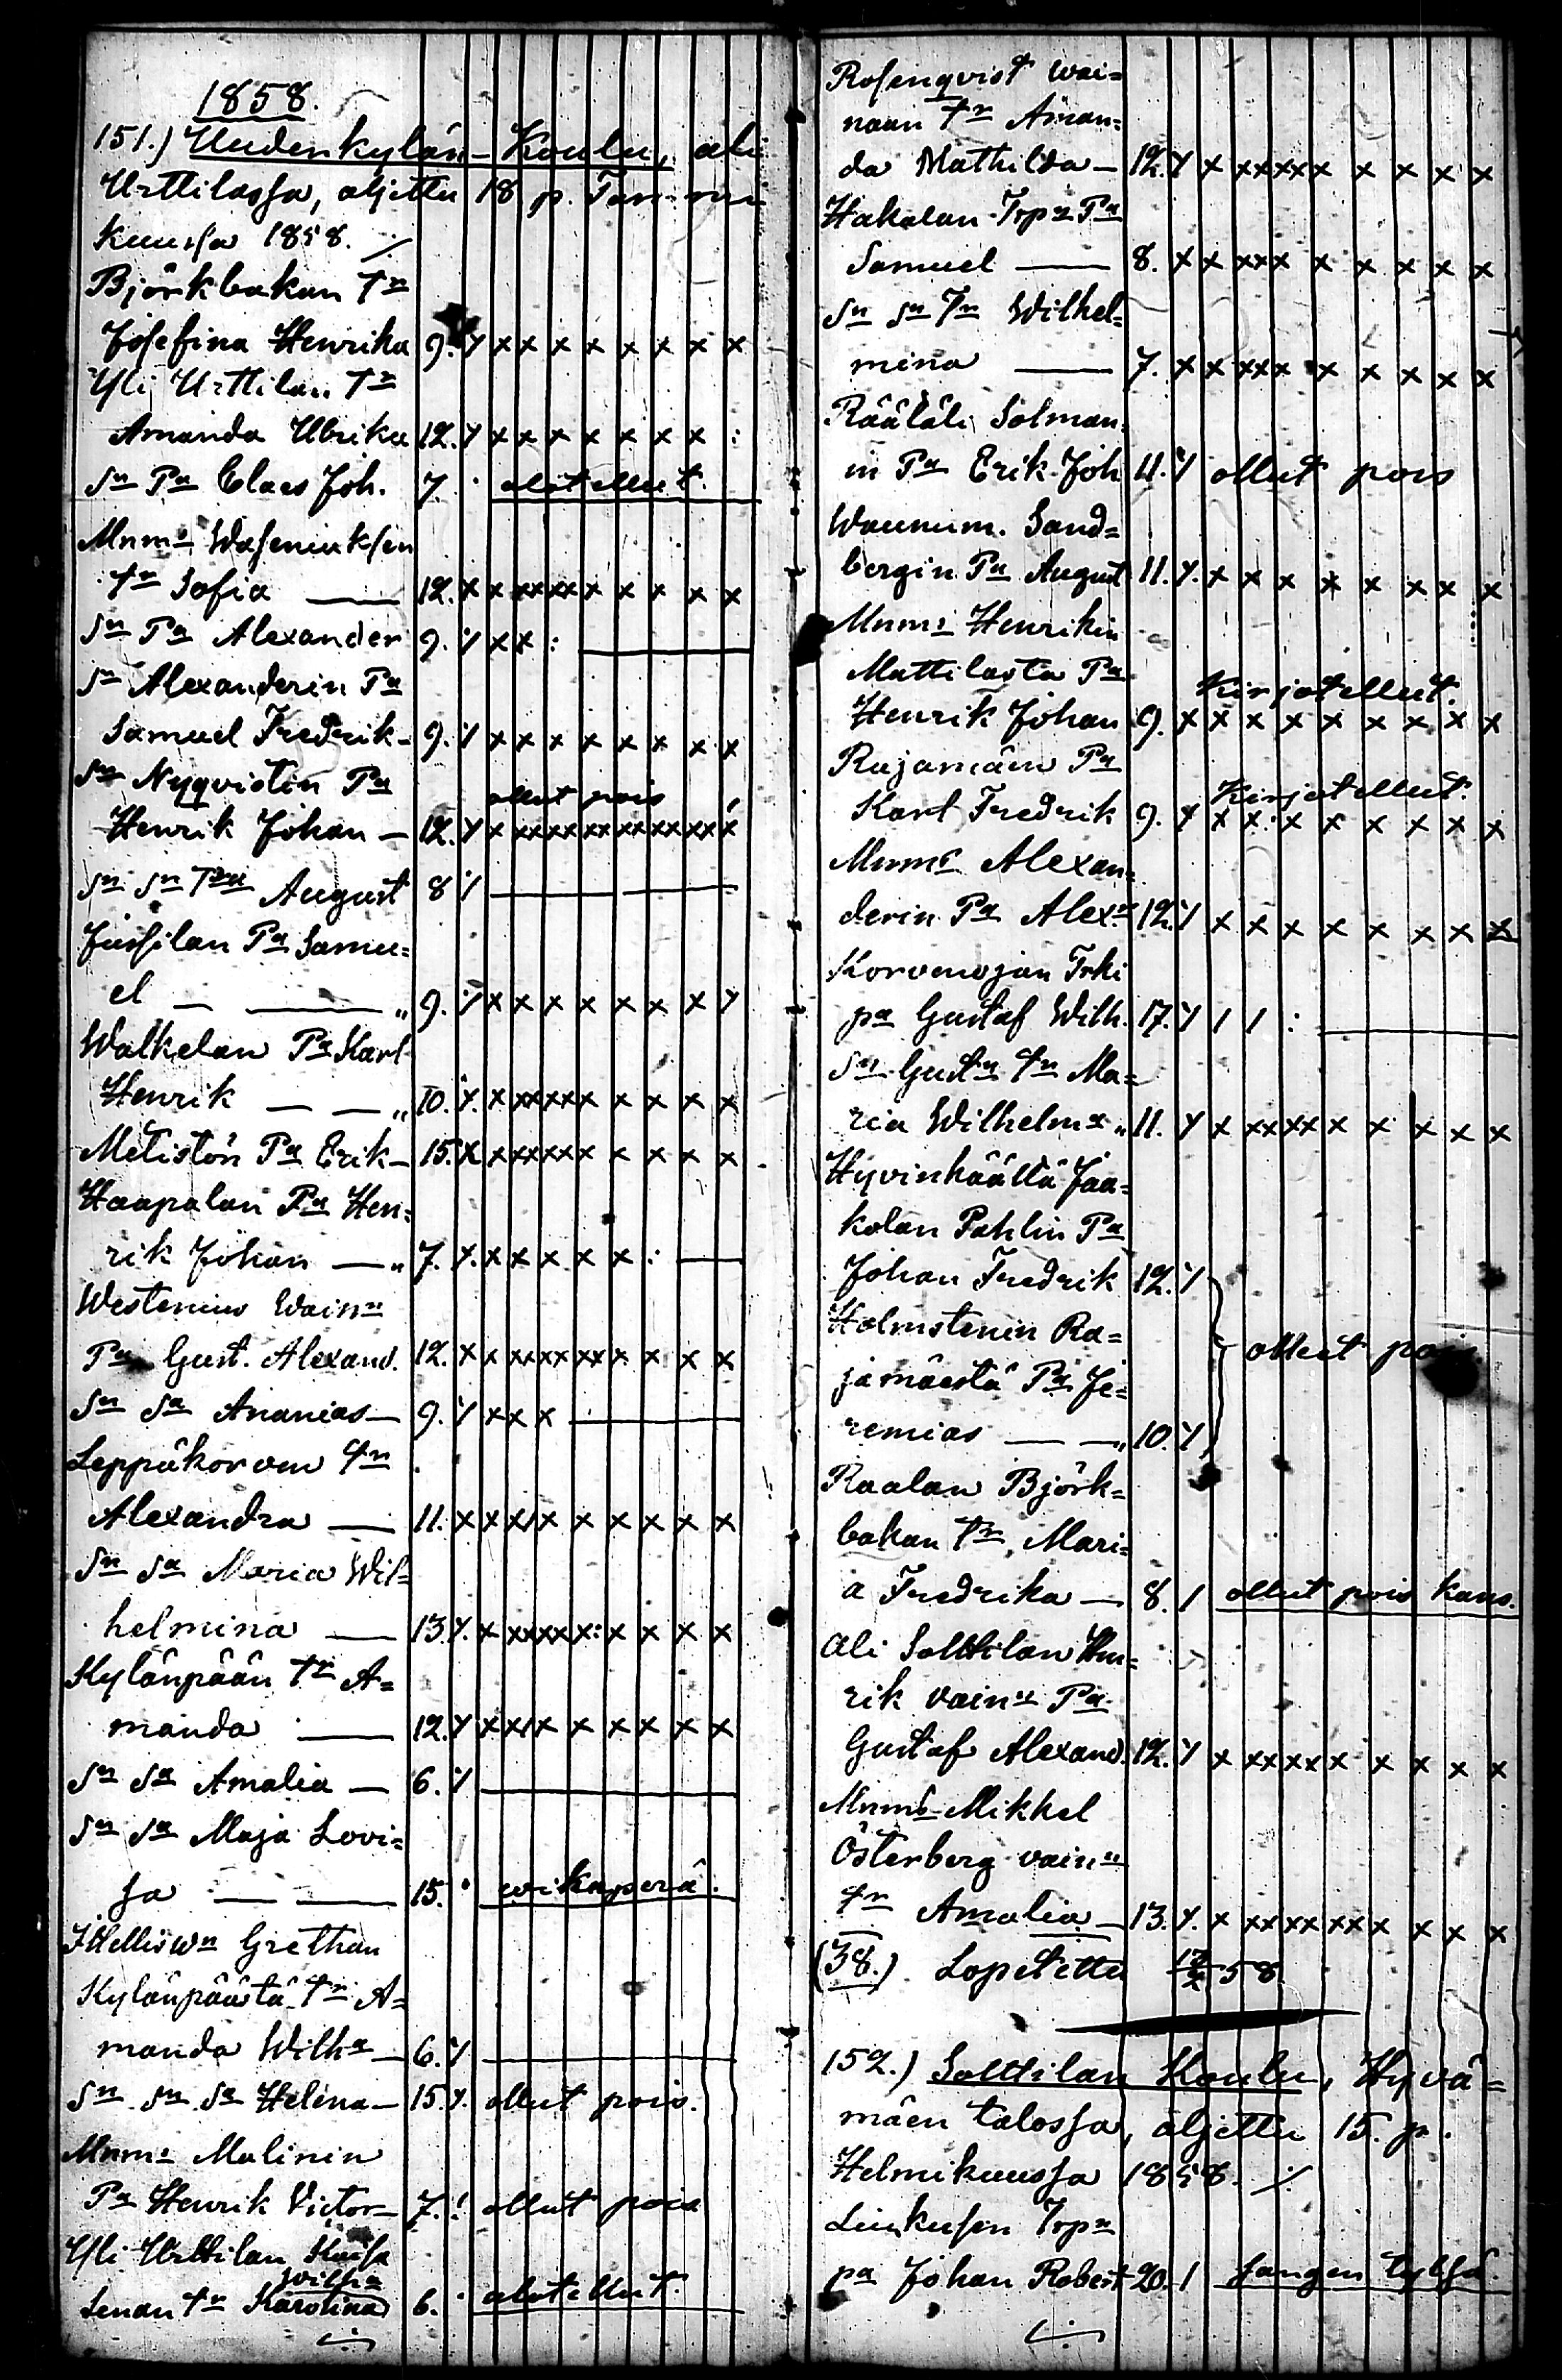 1858.
151.) Uudenkylän-Koulu, ali
Urttilassa, aljettu 18 p. Tammi
kuussa 1858. ·/·
Björkbakan Tr
Josefina Henrika 9. y x x x x x x x x
Yli Urttilan Tr
Amanda Ulrika 12. y x x x x x x x :
Sn Pa Claes Joh. 7. · alotellut.
Mnms Waseniuksen
Tr Sofia — 12. x x xx xx x x x x x
Sn Pa Alexander 9. y x x : —
Sn Alexanderin Pa
Samuel Fredrik - 9. y x x x x x x x x
Sn Nyqvistin Pa
ollut pois
Henrik Johan — 12. y x xx xx xx xx xx x
Sn Sn Pa August 8 y —
Jussilan Pa Samu=
el — — „ 9. y x x x x x x x y
Walkelan Pa Karl
Henrik — — „ 10. y. x xx xx x x x x x
Metistön Pa Erik — 15. x x xx xx x x x x x
Haapalan Pa Hen=
rik Johan — „ 7. y. x x x x x : —
Westenius Wainn
Pa Gust. Alexand. 12. x x xx xx xx x x x x
Sn Sa Ananias — 9. y x x x —
Leppäkorven Tr
Alexandra — 11. x x x/x x x x x x
Sn Sa Maria Wil=
helmina — 13. y. x xx xx x: x x x x
Kylänpään Tr A=
manda — 12. y x x/x x x x x x
Sn Sa Amalia — 6. y —
Sn Sa Maja Lovi=
sa — — 15. · wikaperä.
Itelliswn Grethan
Kylänpäästä Tr A=
manda Wilha — 6. y —
Sn Sn Sa Helena — 15. y. ollut pois.
Mnms Malinin
Pa Henrik Victor — 7. ! ollut pois
Yli Urttilan Kaisa
Wilha
Lenan Tr Karolina 6. · alotellut.
·/·
Rosenqvist wai=
naan Tr Aman=
da Mathilda — 12. y x xx xx x x x x x
Hakalan Trpn Pa
Samuel — 8. x x xx x x x x x x
Sn Sn Tr Wilhel=
mina — 7. x x xx x x x x x x
Räätäli Solman=
in Pa Erik Joh 11. y ollut pois
Waunum. Sand=
bergin Pa August 11. y. x x x x x x x x
Mnms Henrikin
Mattilasta Pa
Kirjotellut.
Henrik Johan 9. x x x x x x x x x
Rajamäen Pa
Kirjotellut.
Karl Fredrik 9. y x x: x x x x x x
Mnms Alexan=
derin Pa Alexr 12. y x x x x x x x x
Korvenojan Trki
pa Gustaf Wilh. 17. y / / : —
Sn Gustn Tr Ma=
ria Wilhelma „ 11. y x xx xx x x x x x
Hyvinkäältä Jaa=
kolan Pahlin Pa
Johan Fredrik 12. y
Holmstenin Ra=
jamäestä Pa Je= ollut pois
remias — — „ 10. y
Raalan Björk=
bakan Tr, Mari=
a Fredrika — 8. / ollut pois kans.
Ali Solttilan Hen=
rik vainn Pa
Gustaf Alexand. 12. y x xx xx x x x x x
Mnms Mikkel
Österberg vainn
Tr Amalia — 13. y. x xx xx xx x x x x
(38.) Lopetettu 58
152.) Solttilan Koulu, Hyvä=
mäen talossa, aljettu 15. p.
Helmikuussa 1858. ·/·
Trpn
pa Johan Robert 20. / sangen tylsä.
·/·